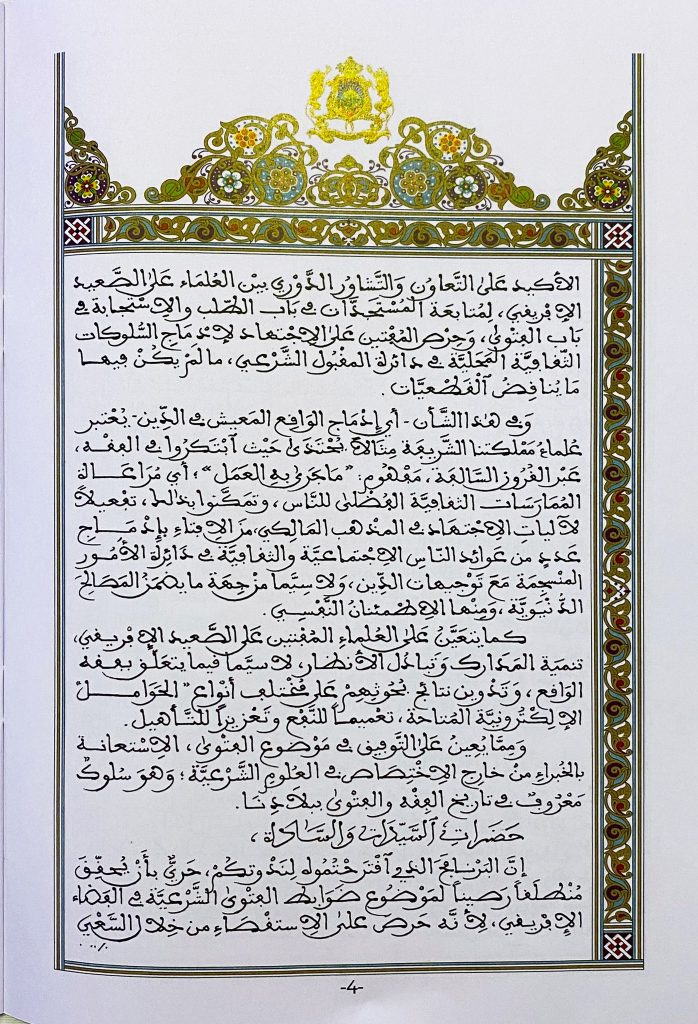 الأكيد على التّعاون والتّشاور الدّوري بين العلماء على الصّعيد
الإفريقي، لمتابعة المستجدّات في باب الطّلب والاستجابة في
باب الفتوى، وحرص المفتين على الاجتهاد لإدماج السّلوكات
الثّقافيّة المحليّة في دائرة المقبول الشّرعي، ما لم يكن فيها
ما يناقض القطعيّات.
وفي هذا الشّأن - أي إدماج الواقع المعيش في الدّين - يُعتبر
علماءُ مملكتنا الشّريفة مثالاً يُحتذى حيث ابتكروا في الفقه،
عبر القرون السّالفة، مفهوم: "ما جرى به العمل"؛ أي مُراعاة
الممارسات الثقافيّة الفُضلى للنّاس، وتمكّنوا بذلك، تفعيلاً
لآليات الاجتهاد في المذهب المالكي، من الإفتاء بإدماج
عددٍ من عوائد النّاس الاجتماعيّة والثّقافيّة في دائرة الأمور
المنسجمة مع توجيهات الدّين، ولا سيّما من جهة ما يضمن المصالح
الدُّنيويّة، ومنها الاطمئنانُ النّفسي.
كما يتعيّنُ على العُلماءِ المفتين على الصّعيد الإفريقي،
تنمية المدارك وتبادُل الأنظار، لا سيّما فيما يتعلّق بفقه
الواقع، وتدوين نتائج بُحوثِهمْ على مُختلف أنواع "الحوامل"
الإلكترونيّة المُتاحة، تعميماً للنّفع وتعزيزاً للتّأهيل.
وممّا يُعينُ على التّوفيق في موضوع الفتوى، الاستعانة
بالخُبراءِ منْ خارج الاختصاص في العلوم الشّرعيّة؛ وهو سُلوكٌ
معْروفٌ في تاريخ الفقه والفتوى ببلادنا.
حضرات السّيّدات والسّادة،
إنّ البرنامج الذي اقترحتُموه لندْوتكُمْ، حريٌّ بأنْ يُحقّق
مُنطلقاً رصيناً لموضوع ضوابط الفتوى الشّرعيّة في الفضاء
الإفريقي، لأنّه حرص على الاستقصاء من خلال السّعْي
-4-